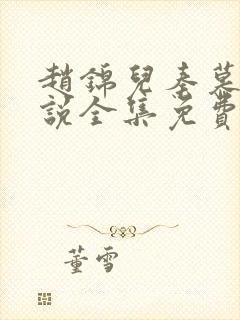 趙錦兒秦慕
說全集免費
董雪